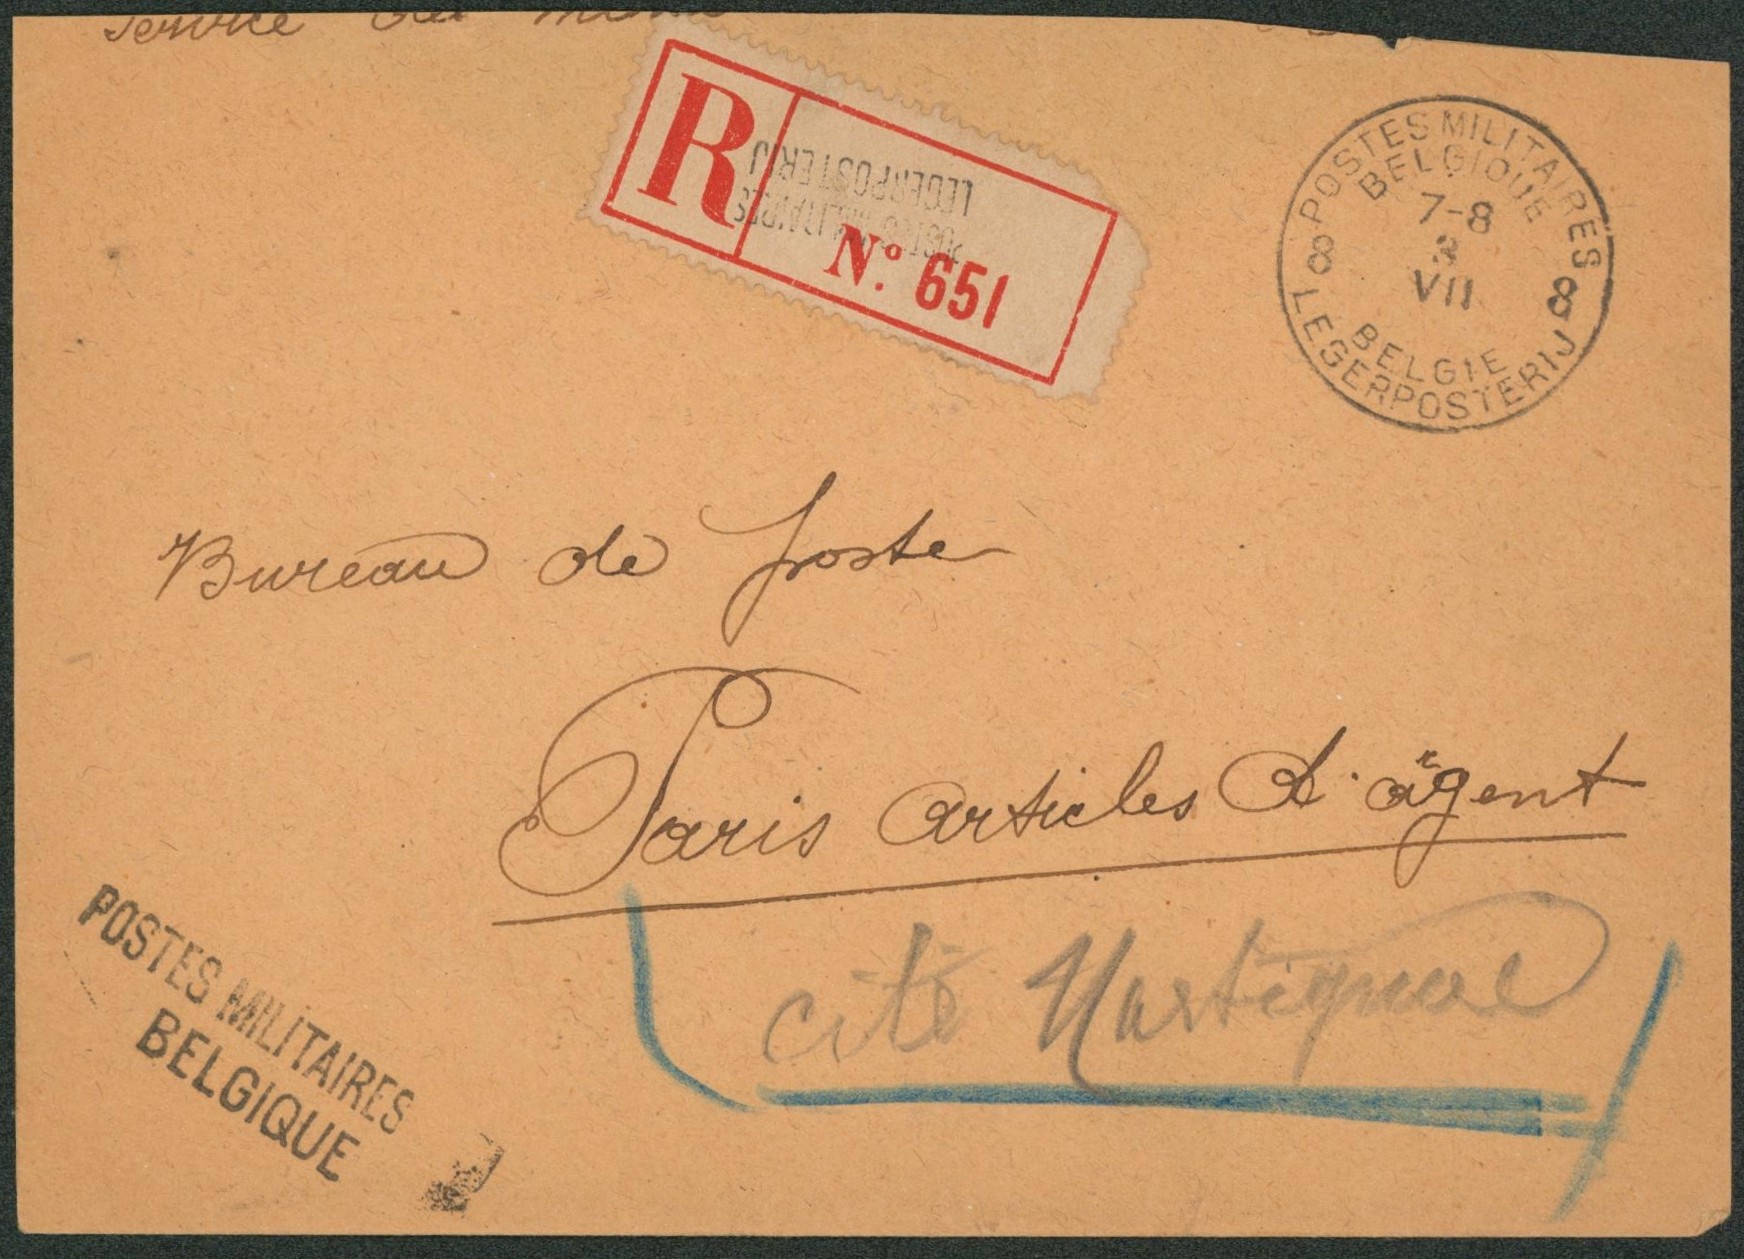 Service des
R
POSTES MILITAIRES
LEGERPOSTERIJ
N° 651
POSTES MILITAIRES
BELGIQUE
7-8
3
VII
8 8
BELGIE
LEGERPOSTERIJ
Bureau de poste
Paris articles d'argent
cité Martignac
POSTES MILITAIRES
BELGIQUE